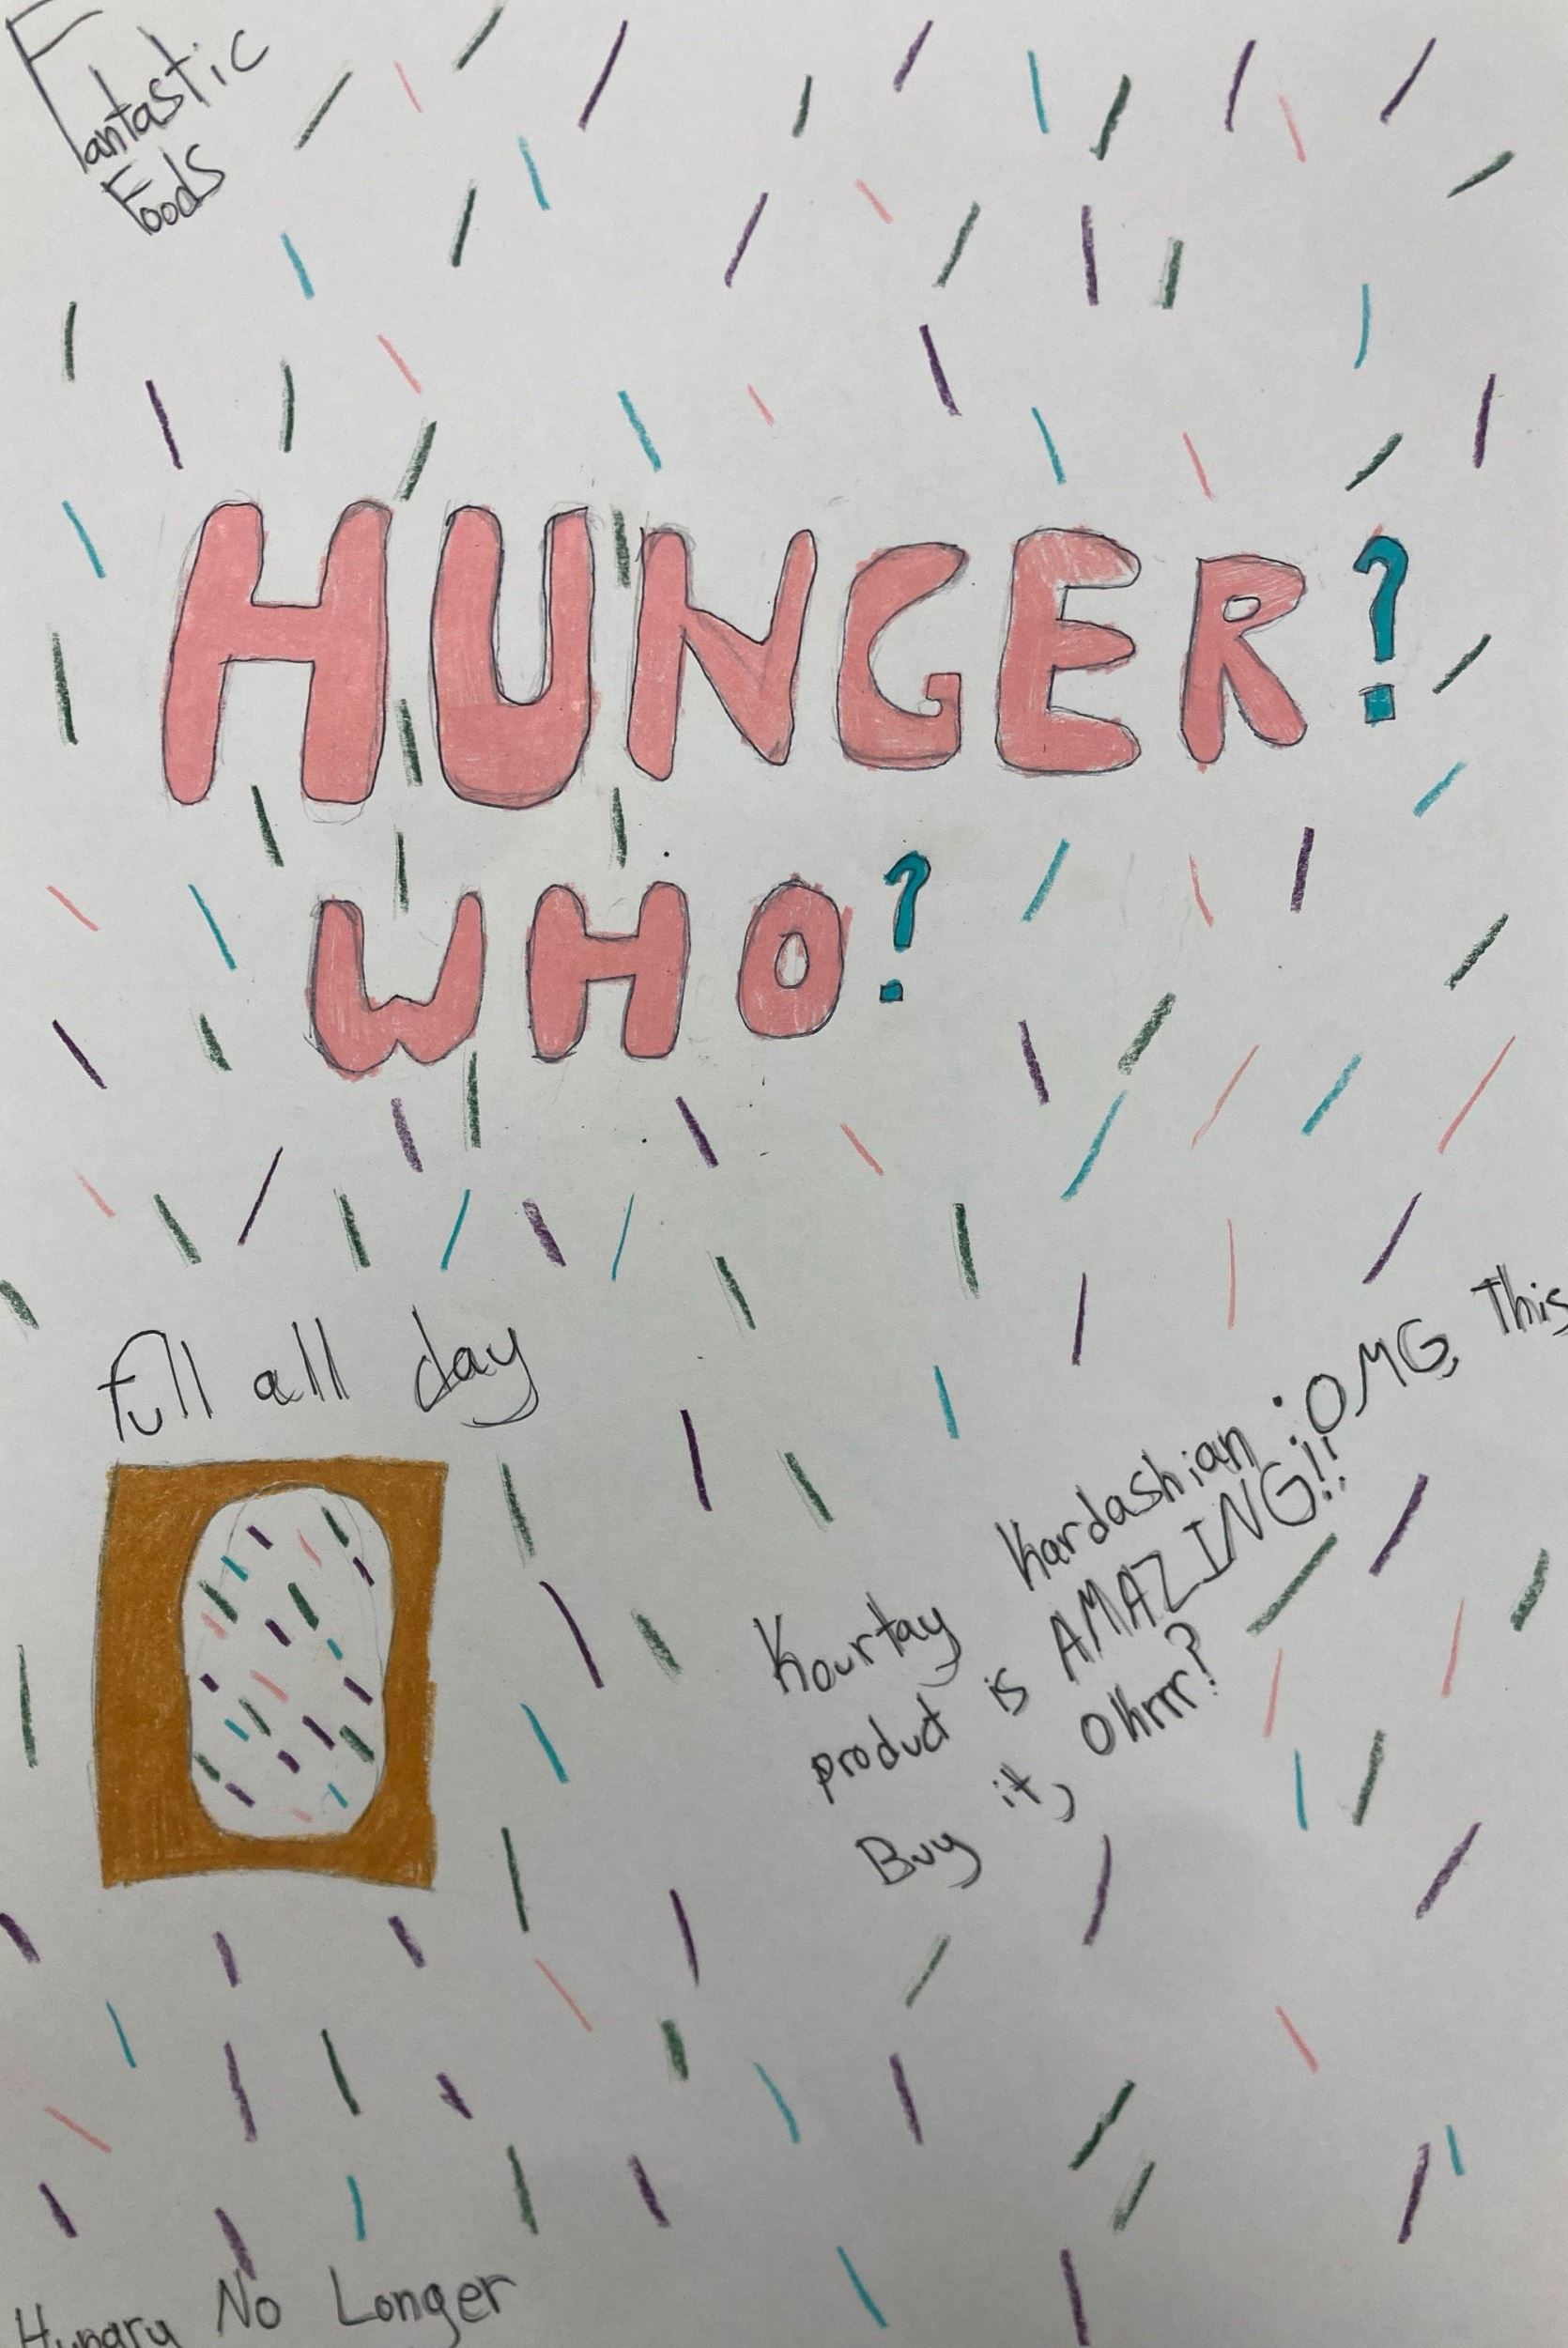 Fantastic
Foods
HUNGER?
WHO?
full all day
Kourtay Kardashian: OMG, This
product is AMAZING!!
Buy it, Okrrr?
Hungry No Longer